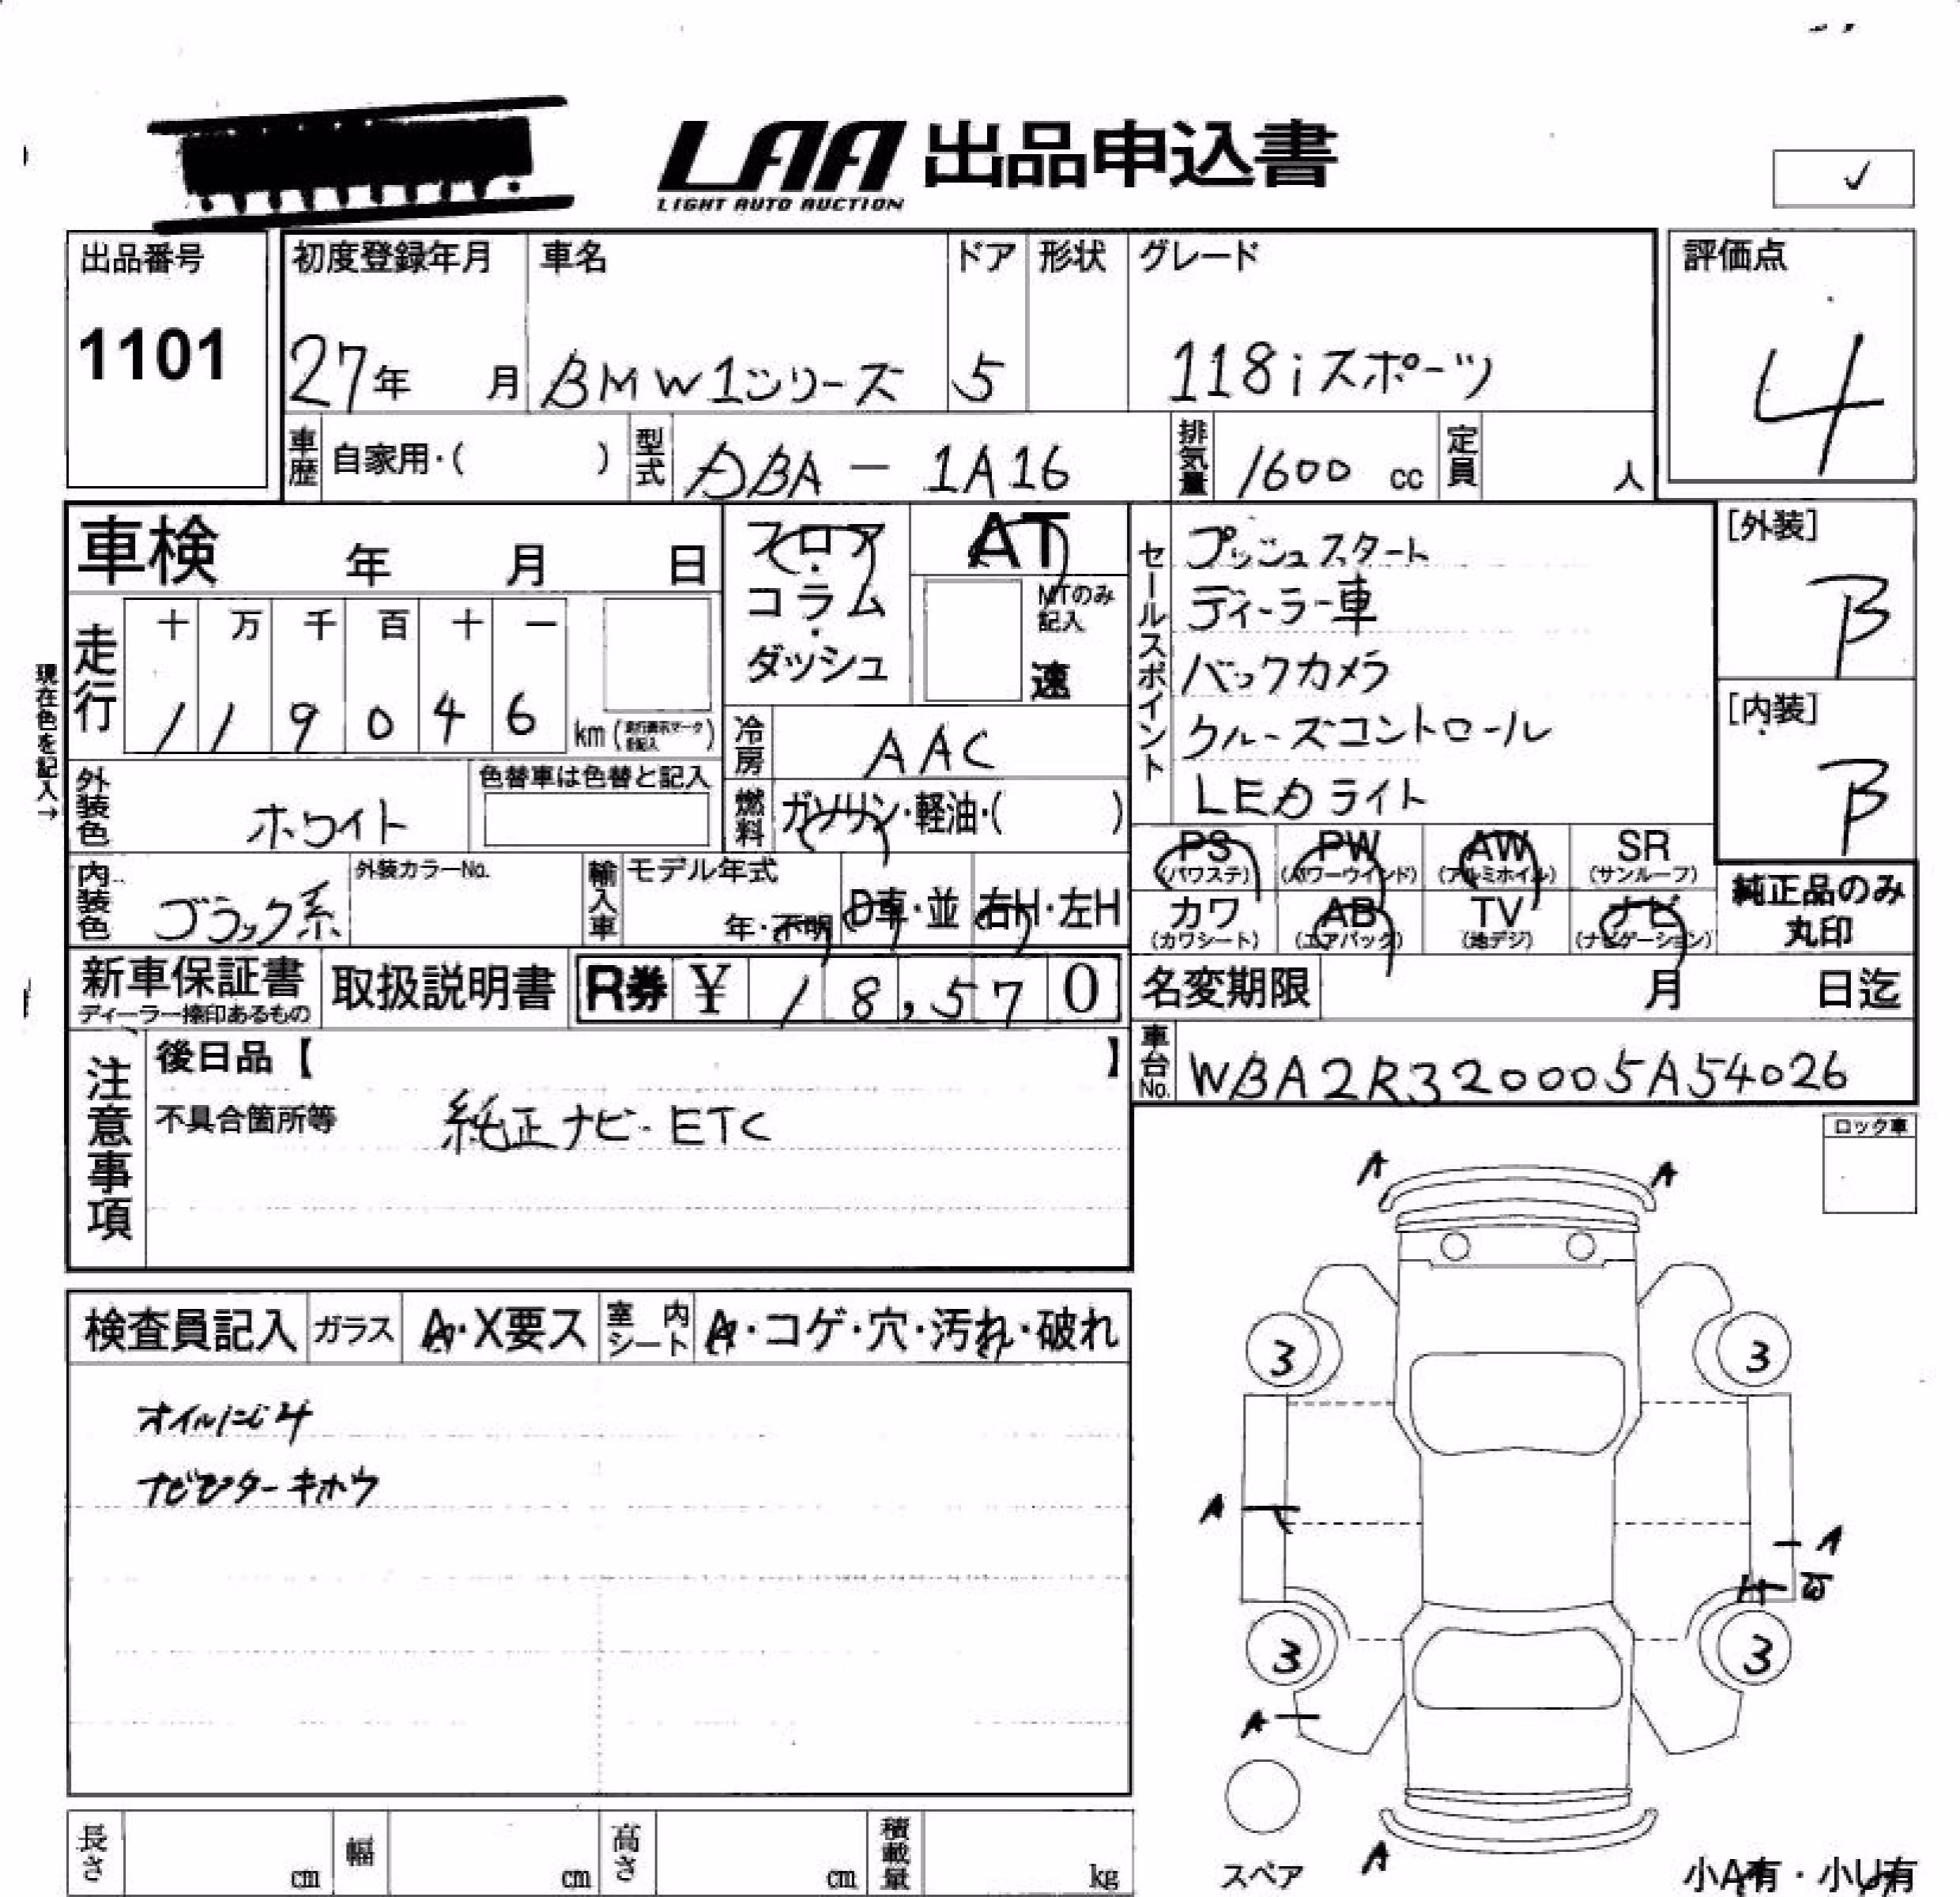 LAA 出品申込書
LIGHT AUTO AUCTION
✓
出品番号
1101
初度登録年月
27年 月
車名
BMW1シリーズ
ドア
5
形状
グレード
118iスポーツ
評価点
4
車歴 自家用・( )
型式 DBA - 1A16
排気量 1600 cc
定員 人
車検 年 月 日
フロア・コラム・ダッシュ
AT
MTのみ記入
速
セールスポイント
プッシュスタート
ディーラー車
バックカメラ
クルーズコントロール
LEDライト
[外装]
B
[内装]
B
現在色を記入→
走行
十 万 千 百 十 一
1 1 9 0 4 6 km
冷房 AAC
外装色 ホワイト
色替車は色替と記入
燃料 ガソリン・軽油・( )
内装色 ブラック系
外装カラーNo.
輸入車 モデル年式
年・不明 D車・並 右H・左H
PS (パワステ) PW (パワーウインド) AW (アルミホイル) SR (サンルーフ)
カワ (カワシート) AB (エアバック) TV (地デジ) ナビ (ナビゲーション)
純正品のみ
丸印
新車保証書
ディーラー捺印あるもの
取扱説明書
R券 ¥ 18,570
名変期限 月 日迄
車台No. WBA2R320005A54026
注意事項
後日品【 】
不具合箇所等
純正ナビ・ETC
ロック車
検査員記入 ガラス A・X要ス 室内シート A・コゲ・穴・汚れ・破れ
オイルにじみ
A A
3 3
A
A
3 3
A
A
スペア
小A有・小U有
長さ cm 幅 cm 高さ cm 積載量 kg